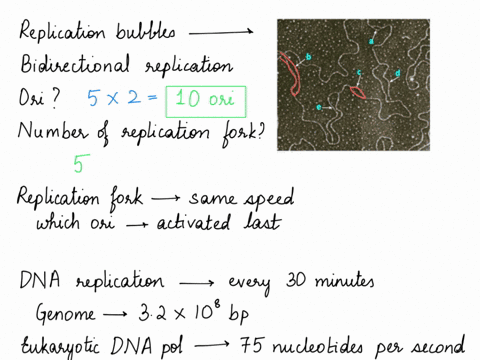 Replication bubbles →
Bidirectional replication
Ori? 5 × 2 = 10 ori
Number of replication fork?
5
Replication fork → same speed
which ori → activated last
DNA replication → every 30 minutes
Genome → 3.2 × 10⁸ bp
Eukaryotic DNA pol → 75 nucleotides per second
a
b
c
d
e